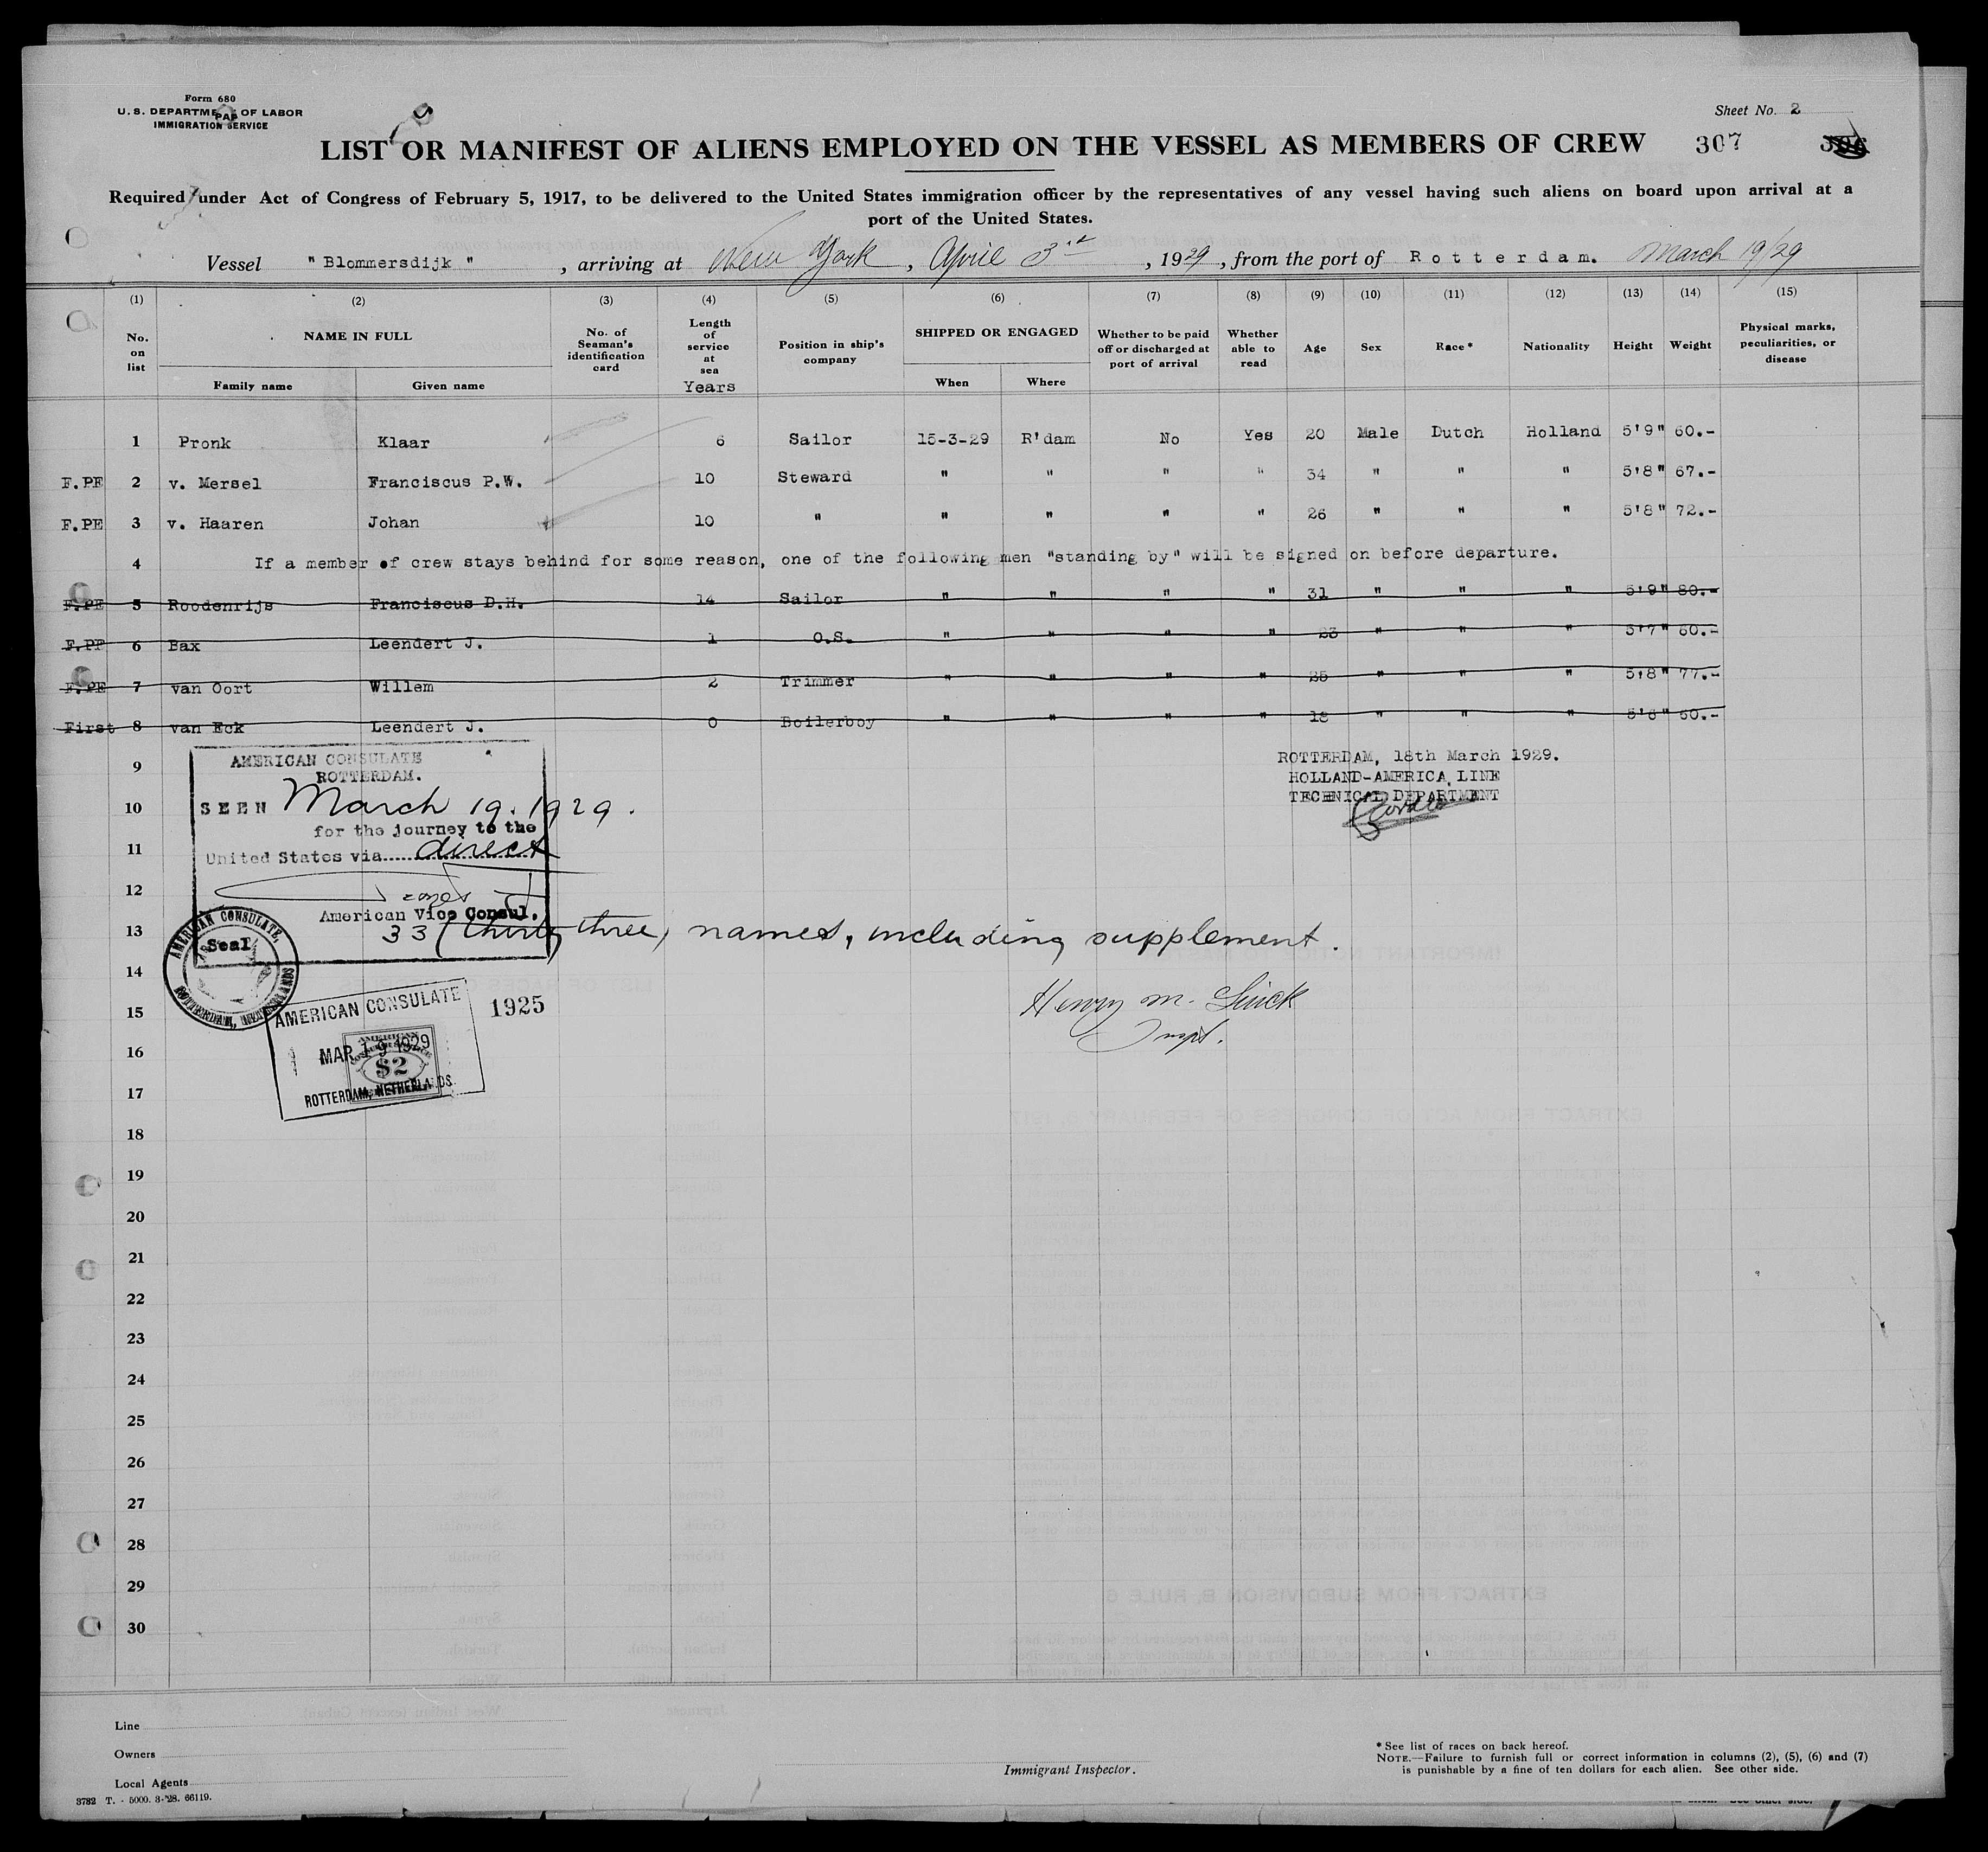 Form 680
U. S. DEPARTMENT OF LABOR
IMMIGRATION SERVICE
Sheet No. 2
LIST OR MANIFEST OF ALIENS EMPLOYED ON THE VESSEL AS MEMBERS OF CREW 307
Required under Act of Congress of February 5, 1917, to be delivered to the United States immigration officer by the representatives of any vessel having such aliens on board upon arrival at a
port of the United States.
Vessel "Blommersdijk", arriving at New York, April 3rd, 1929, from the port of Rotterdam. March 19/29
(1) (2) (3) (4) (5) (6) (7) (8) (9) (10) (11) (12) (13) (14) (15)
No. on list NAME IN FULL No. of Seaman's identification card Length of service at sea Years Position in ship's company SHIPPED OR ENGAGED Whether to be paid off or discharged at port of arrival Whether able to read Age Sex Race* Nationality Height Weight Physical marks, peculiarities, or disease
Family name Given name When Where
1 Pronk Klaar 6 Sailor 15-3-29 R'dam No Yes 20 Male Dutch Holland 5'9" 60.-
F.PE 2 v. Mersel Franciscus P.W. 10 Steward " " " " 34 " " " 5'8" 67.-
F.PE 3 v. Haaren Johan 10 " " " " " 26 " " " 5'8" 72.-
4 If a member of crew stays behind for some reason, one of the following men "standing by" will be signed on before departure.
F.PE 5 Roodenrijs Franciscus D.H. 14 Sailor " " " " 31 " " " 5'9" 80.-
F.PE 6 Bax Leendert J. 1 O.S. " " " " 23 " " " 5'7" 60.-
F.PE 7 van Oort Willem 2 Trimmer " " " " 25 " " " 5'8" 77.-
First 8 van Eck Leendert J. 0 Boilerboy " " " " 18 " " " 5'6" 50.-
9
10
11
12
13
14
15
16
17
18
19
20
21
22
23
24
25
26
27
28
29
30
AMERICAN CONSULATE
ROTTERDAM.
SEEN March 19. 1929.
for the journey to the
United States via direct
American Vice Consul.
33 (thirty three) names, including supplement.
ROTTERDAM, 18th March 1929.
HOLLAND-AMERICA LINE
TECHNICAL DEPARTMENT
AMERICAN CONSULATE,
Seal
ROTTERDAM, NETHERLANDS
Henry M.
Insp.
AMERICAN CONSULATE
1925
MAR 19 1929
AMERICAN
$2
ROTTERDAM, NETHERLANDS
Line
Owners
Local Agents
Immigrant Inspector.
* See list of races on back hereof.
NOTE.—Failure to furnish full or correct information in columns (2), (5), (6) and (7)
is punishable by a fine of ten dollars for each alien. See other side.
3782 T. - 5000. 3-'28. 66119.